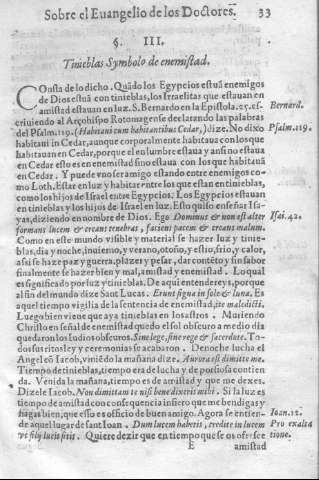 Sobre el Euangelio de los Doctores. 33
§. III.
Tinieblas Symbolo de enemistad.
COnsta de lo dicho. Quãdo los Egypcios estuã enemigos
de Dios estuã con tinieblas, los Israelitas que estauan en
amistad estauan en luz. S. Bernardo en la Epistola. 25. es- Bernard.
criuiendo al Arçobispo Rotomagense declarando las palabras
del Psalm. 119. (Habitaui cum habitantibus Cedar,) dize. No dixo Psalm. 119.
habitaui in Cedar, aunque corporalmente habitaua con los que
habitauan en Cedar, porque el en lumbre estaua y ansi no estaua
en Cedar esto es en enemistad sino estaua con los que habitauã
en Cedar. Y puede vno ser amigo estando entre enemigos co-
mo Loth. Estar en luz y habitar entre los que estan en tinieblas,
como los hijos de Israel entre Egypcios. Los Egypcios estauan
en tinieblas y los hijos de Israel en luz. Esto quiso enseñar Isa-
yas, diziendo en nombre de Dios. Ego Dominus & non est alter Isai. 42.
formans lucem & creans tenebras, faciens pacem & creans malum.
Como en este mundo visible y material se hazer luz y tinie-
blas, dia y noche, inuierno, y verano, otoño, y estio, frio, y calor,
asi se haze paz y guerra, plazer y pesar, dar contēto y sin sabor
finalmente se hazer bien y mal, amistad y enemistad. Lo qual
es significado por luz y tinieblas. De aqui entendereys, porque
al fin del mundo dize Sant Lucas. Erunt signa in sole & luna. Es
aquel tiempo vigilia de la sentencia de enemistad, ite maledicti.
Luego bien viene que aya tinieblas en los astros. Muriendo
Christo en señal de enemistad quedo el sol obscuro a medio dia
quedaron los Iudios obscuros. Sine lege, sine rege & sacerdote. To-
dos sus ritos ley y ceremonias se acabaron. De noche lucha el
Angel cõ Iacob, viniēdo la mañana dize. Aurora est dimitte me.
Tiempo de tinieblas, tiempo era de lucha y de porfiosa contien
da. Venida la mañana, tiempo es de amistad y que me dexes.
Dizele Iacob. Non dimittam te nisi benedixeris mihi. Si la luz es
tiempo de amistad con consequencia infiero que me bendigas y
hagas bien, que esso es officio de buen amigo. Agora se entien- Ioan. 12.
de aquel lugar de sant Ioan. Dum lucem habetis, credite in lucem Pro exalta
vt filij lucis sitis. Quiere dezir que en tiempo que se os ofresce tione.
E amistad